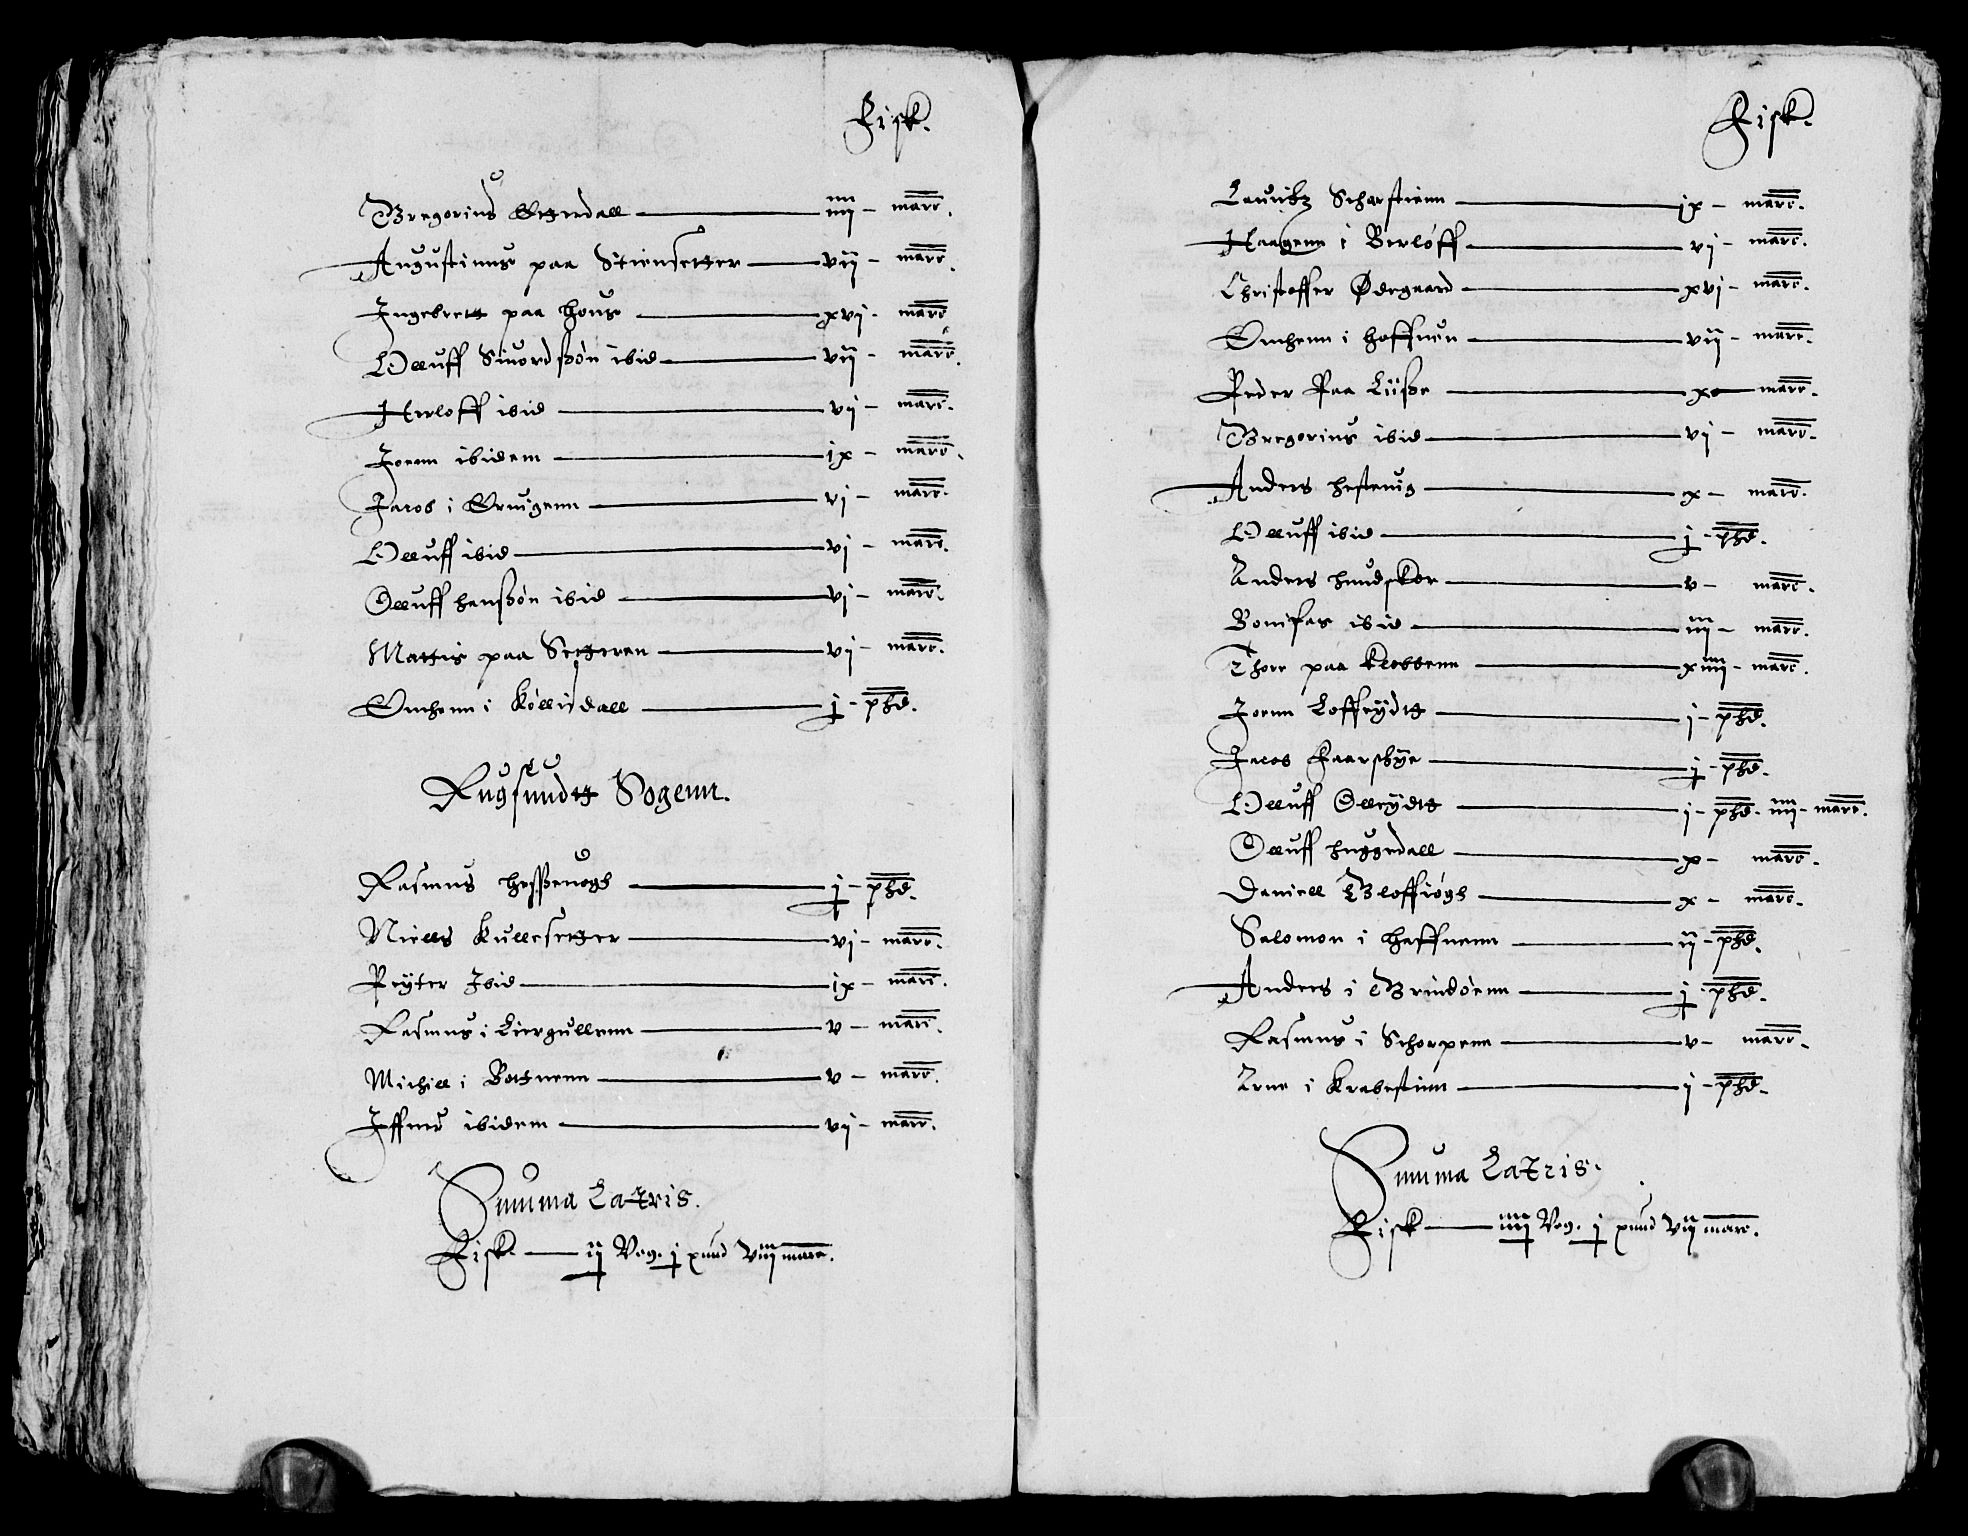 Fisk.
Gregorius Ettedall — iiii — marc.
Augustinus paa Stiensetter — vij — marc.
Ingebrett paa Hous — xvj. marc
Olluff Siuordsßøn ibid — vij — marc.
Herloff ibid — vj — marc.
Joenn ibidem — ix — marc.
Jacob i Eruigenn — vj — marc.
Olluff ibid — vj — marc.
Olluff hanßøn ibid — vj — marc.
Mattis paa Setteren — vj — marc.
Omhenn i Køllisdall — j — phd.
Rugsundtt Sogenn.
Rasmus heßßeuogh — j — phd.
Niells Kullesetter — vj — marc.
Peyter Ibid — ix — marc.
Rasmus i Liergullenn — v — marc.
Michill i Bottnenn — v — marc.
Iffuer ibidem — vj — marc.
Summa Latris.
Fisk — ij Vog. j pund viij marc.
Fisk.
Lauritz Scharstienn — ix — marc.
Haagenn i Berløff — vj — marc.
Christoffer Ødegaard — xvj — marc.
Omhenn i haffuen — vij — marc.
Peder Paa Liiße — x — marc.
Gregorius ibid — vj — marc.
Anders hesteuig — x — marc.
Olluff ibid — j — phd.
Anders hundskor — v — marc.
Bonifas ibid — iij — marc.
Thore paa Klobbenn — xiiii — marc.
Joenn Loffeydtt — j — phd.
Jacob Faarsbye — j — phd.
Olluff Olleydtt — j — phd. iiii — marc.
Olluff huggedall — x — marc.
Daniell Bloffiøgh — x — marc.
Salomon i haffnenn — ij — phd.
Anders i Grindøenn — j — phd.
Rasmus i Schorpenn — v — marc.
Arne i Krabestinn — j — phd.
Summa Latris.
Fisk — iiij Vog. j pund vij marc.